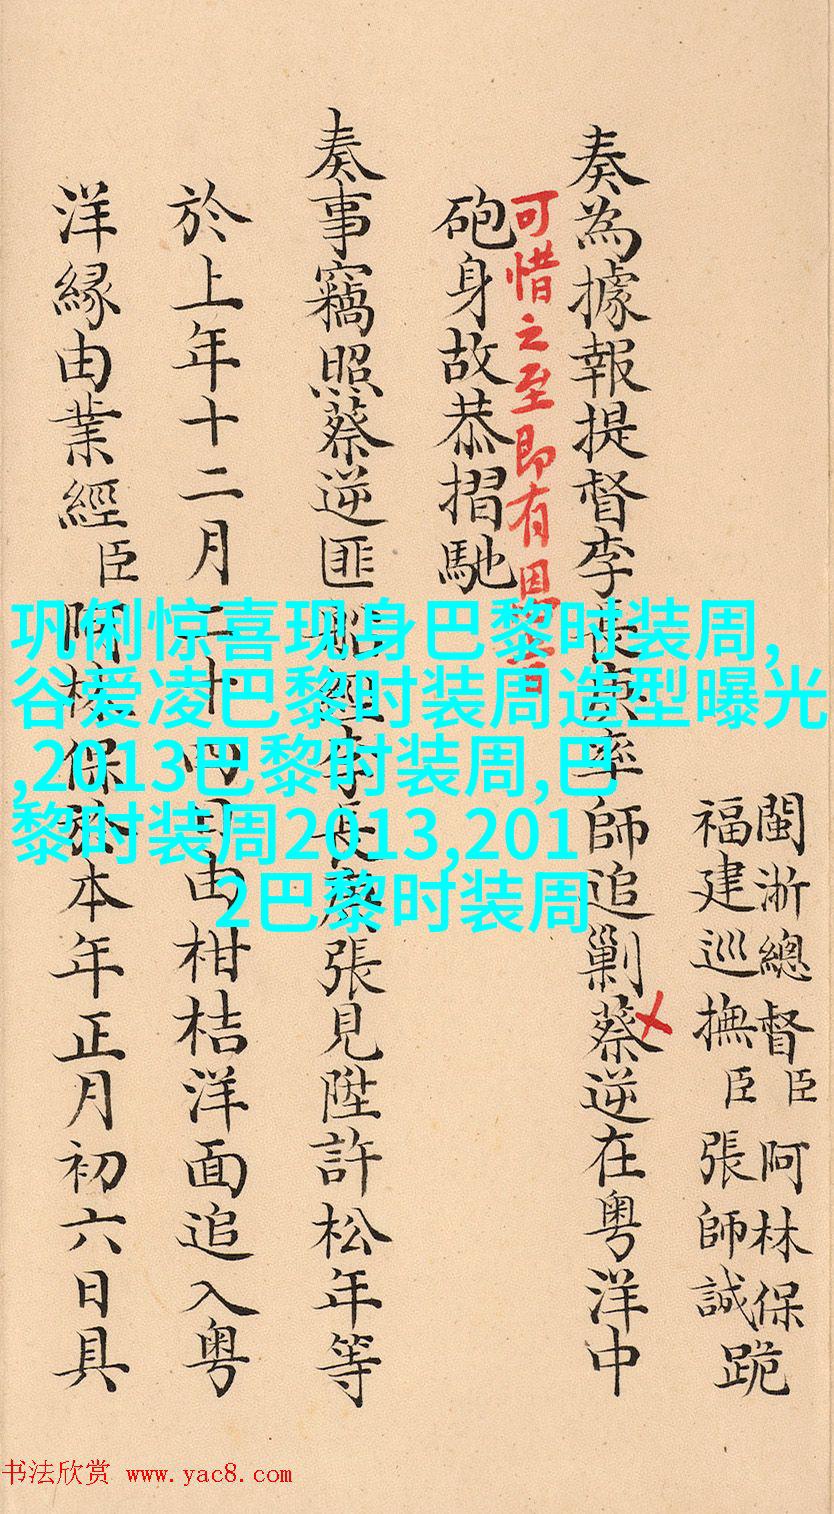 閩浙總督臣阿林保
福建巡撫臣張師誠跪
奏為據報提督李長庚率師追剿蔡逆在粵洋中
可惜之至即有恩旨
砲身故恭摺馳
奏事竊照蔡逆匪船經李長庚張見陞許松年等
於上年十二月二十四日由柑桔洋面追入粵
洋緣由業經臣阿林保於本年正月初六日具
巩俐惊喜现身巴黎时装周,
谷爱凌巴黎时装周造型曝光
,2013巴黎时装周,巴
黎时装周2013,201
2巴黎时装周
书法欣赏 www.yac8.com